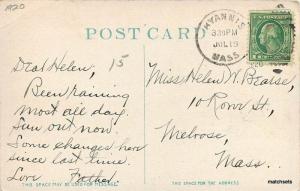 1920
POST CARD
HYANNIS
3 30 PM
JUL 19
MASS.
1920
15
Dear Helen,
Been raining
most all day.
Sun out now.
Some changes here
since last time.
Love Father
Miss Helen W. Bearse,
10 Rowe St,
Melrose,
Mass.
THIS SPACE MAY BE USED FOR MESSAGE.
THIS SPACE FOR THE ADDRESS.
matchsets